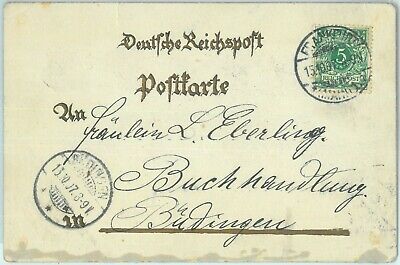 Deutsche Reichspost
Postkarte
An
Fräulein L. Eberling.
Buchhandlung
in
Büdingen
5
REICHSPOST
FRANKFURT
13.10.97.8-9V.